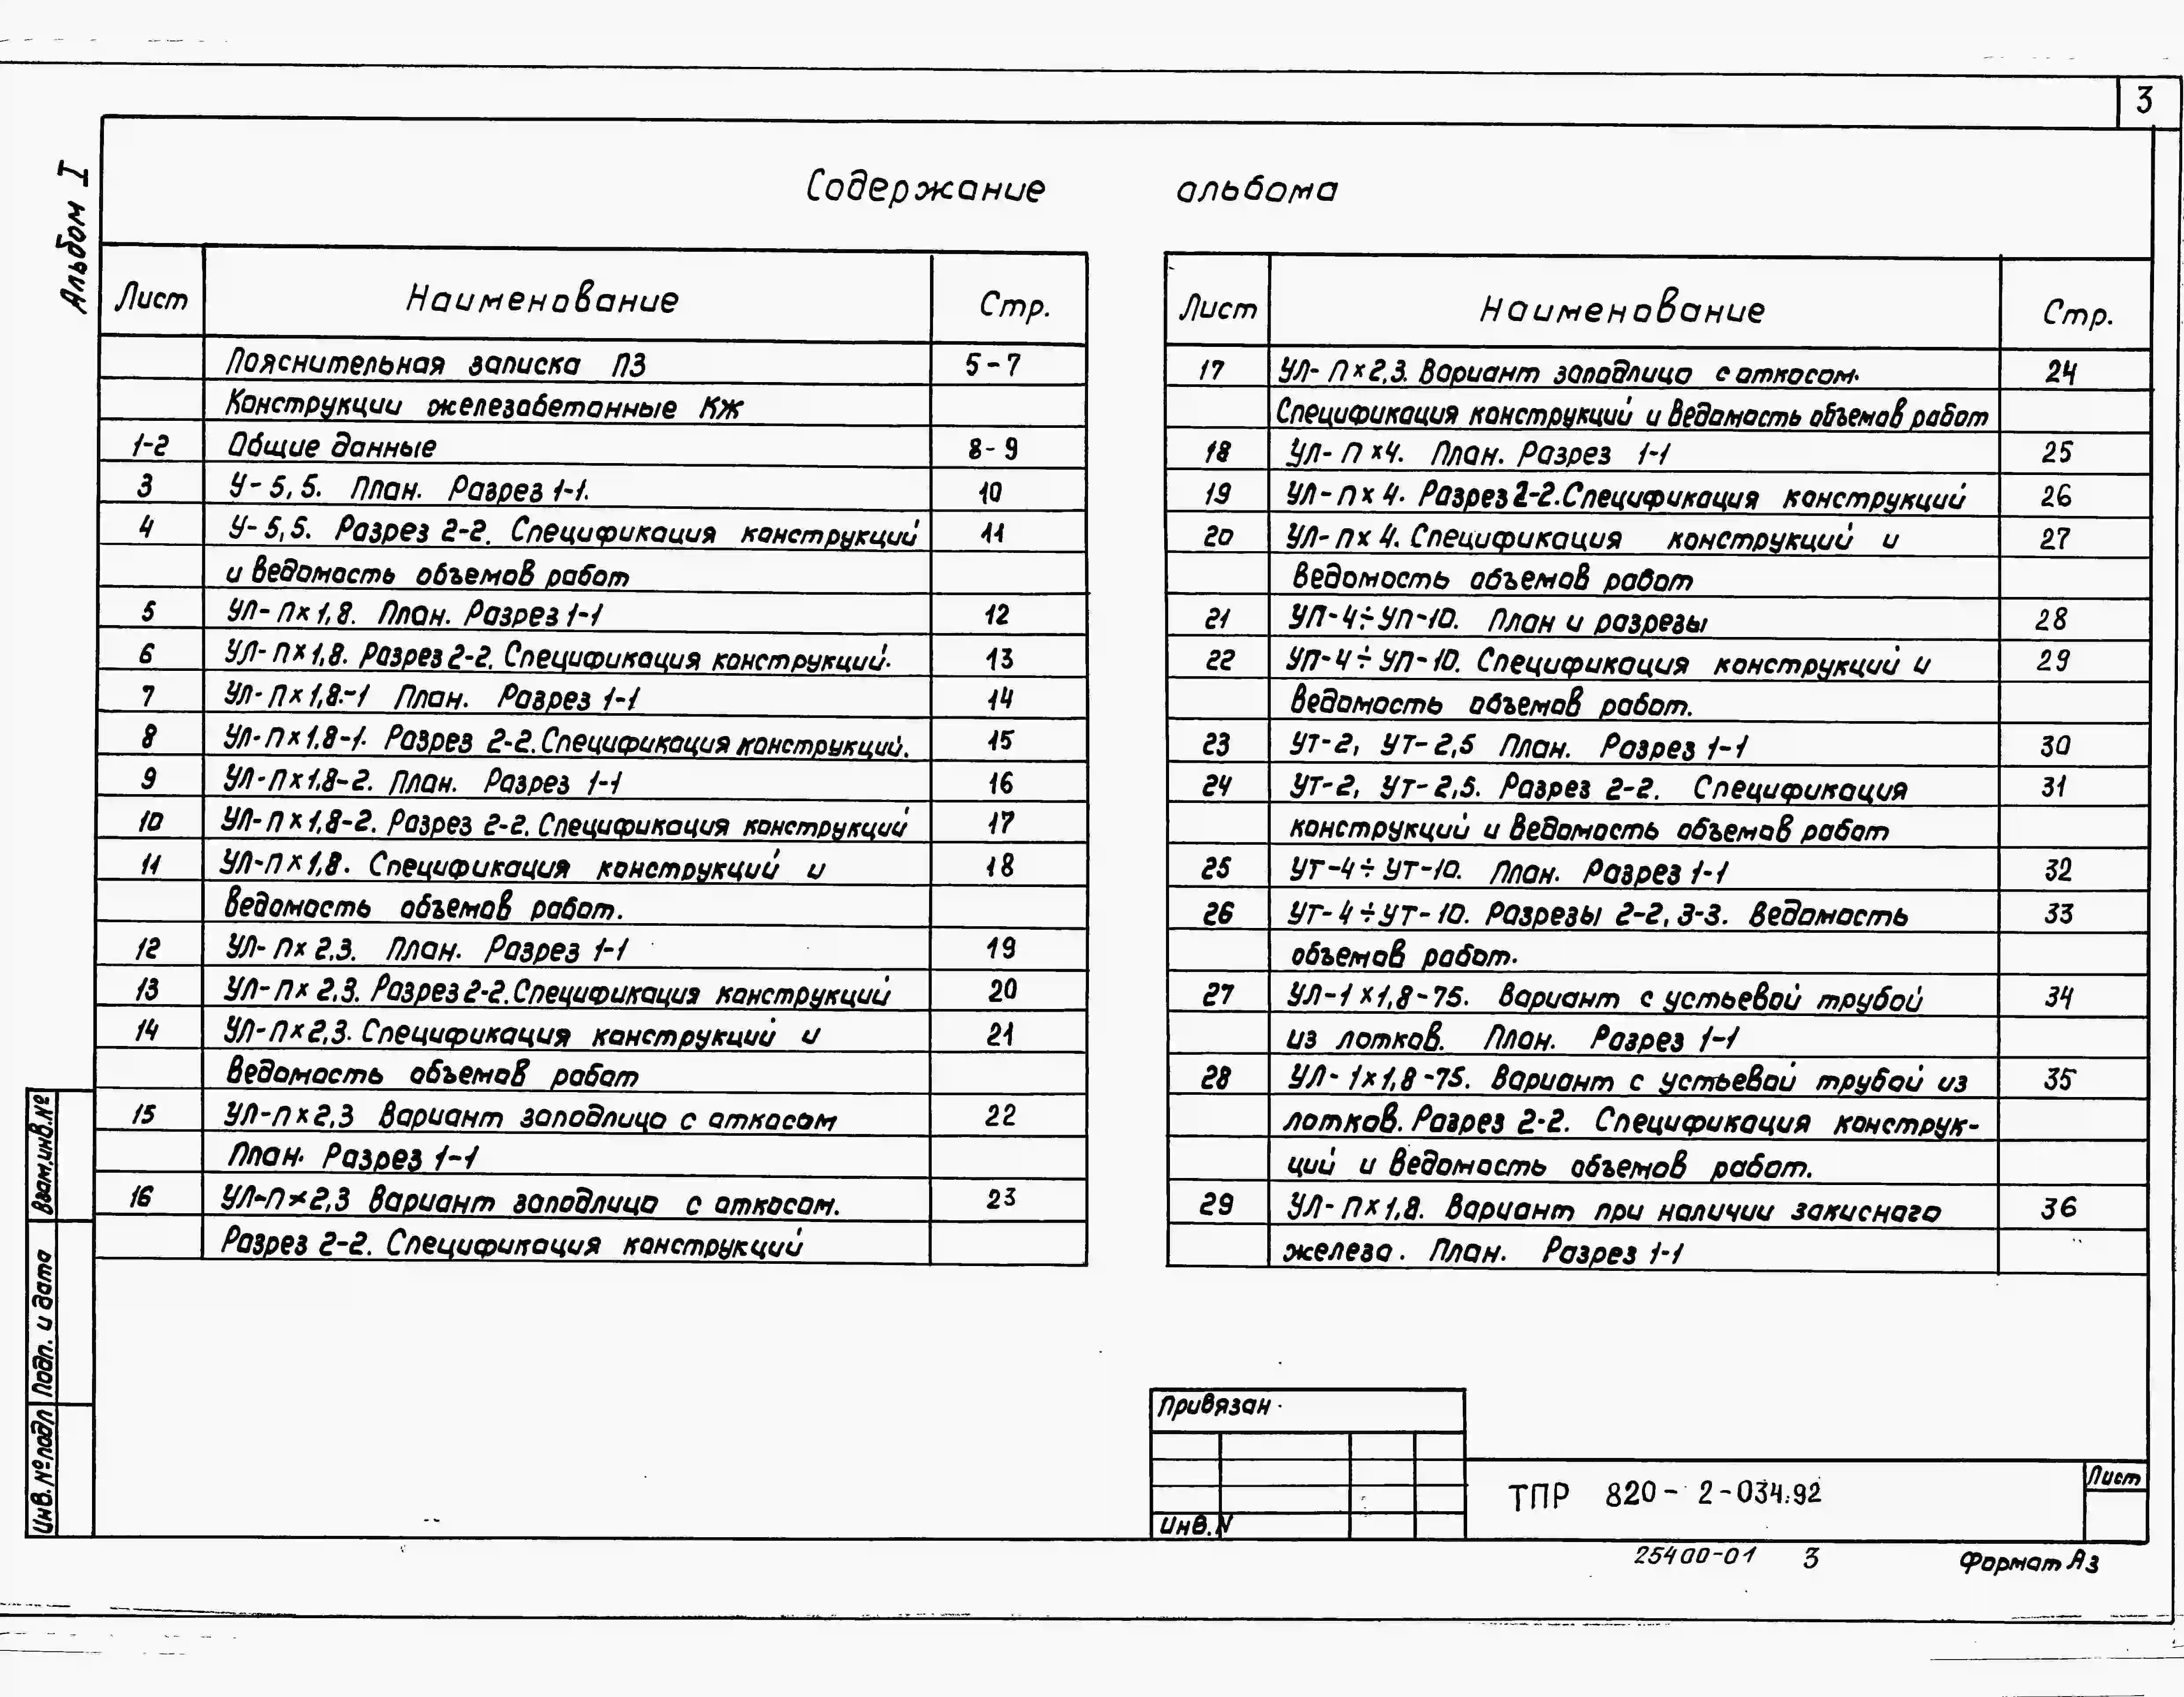 3
Альбом I
Содержание альбома
Лист Наименование Стр.
Пояснительная записка ПЗ 5-7
Конструкции железобетонные КЖ
1-2 Общие данные 8-9
3 У-5,5. План. Разрез 1-1. 10
4 У-5,5. Разрез 2-2. Спецификация конструкций 11
и ведомость объемов работ
5 УЛ-п×1,8. План. Разрез 1-1 12
6 УЛ-п×1,8. Разрез 2-2. Спецификация конструкций. 13
7 УЛ-п×1,8.-1 План. Разрез 1-1 14
8 УЛ-п×1.8-1. Разрез 2-2. Спецификация конструкций. 15
9 УЛ-п×1,8-2. План. Разрез 1-1 16
10 УЛ-п×1,8-2. Разрез 2-2. Спецификация конструкций 17
11 УЛ-п×1,8. Спецификация конструкций и 18
ведомость объемов работ.
12 УЛ-п×2.3. План. Разрез 1-1 19
13 УЛ-п×2.3. Разрез 2-2. Спецификация конструкций 20
14 УЛ-п×2,3. Спецификация конструкций и 21
ведомость объемов работ
15 УЛ-п×2,3 Вариант заподлицо с откосом 22
План. Разрез 1-1
16 УЛ-п×2,3 Вариант заподлицо с откосом. 23
Разрез 2-2. Спецификация конструкций
Лист Наименование Стр.
17 УЛ-п×2,3. Вариант заподлицо с откосом. 24
Спецификация конструкций и ведомость объемов работ
18 УЛ-п×4. План. Разрез 1-1 25
19 УЛ-п×4. Разрез 2-2. Спецификация конструкций 26
20 УЛ-п×4. Спецификация конструкций и 27
ведомость объемов работ
21 УП-4÷УП-10. План и разрезы 28
22 УП-4÷УП-10. Спецификация конструкций и 29
ведомость объемов работ.
23 УТ-2, УТ-2,5 План. Разрез 1-1 30
24 УТ-2, УТ-2,5. Разрез 2-2. Спецификация 31
конструкций и ведомость объемов работ
25 УТ-4÷УТ-10. План. Разрез 1-1 32
26 УТ-4÷УТ-10. Разрезы 2-2, 3-3. Ведомость 33
объемов работ.
27 УЛ-1×1,8-75. Вариант с устьевой трубой 34
из лотков. План. Разрез 1-1
28 УЛ-1×1,8-75. Вариант с устьевой трубой из 35
лотков. Разрез 2-2. Спецификация конструк-
ций и ведомость объемов работ.
29 УЛ-п×1,8. Вариант при наличии закисного 36
железа. План. Разрез 1-1
Взам.инв.№
Подп. и дата
Инв.№подл
Привязан
Инв.N
ТПР 820-2-034.92
Лист
25400-01 3
Формат А3